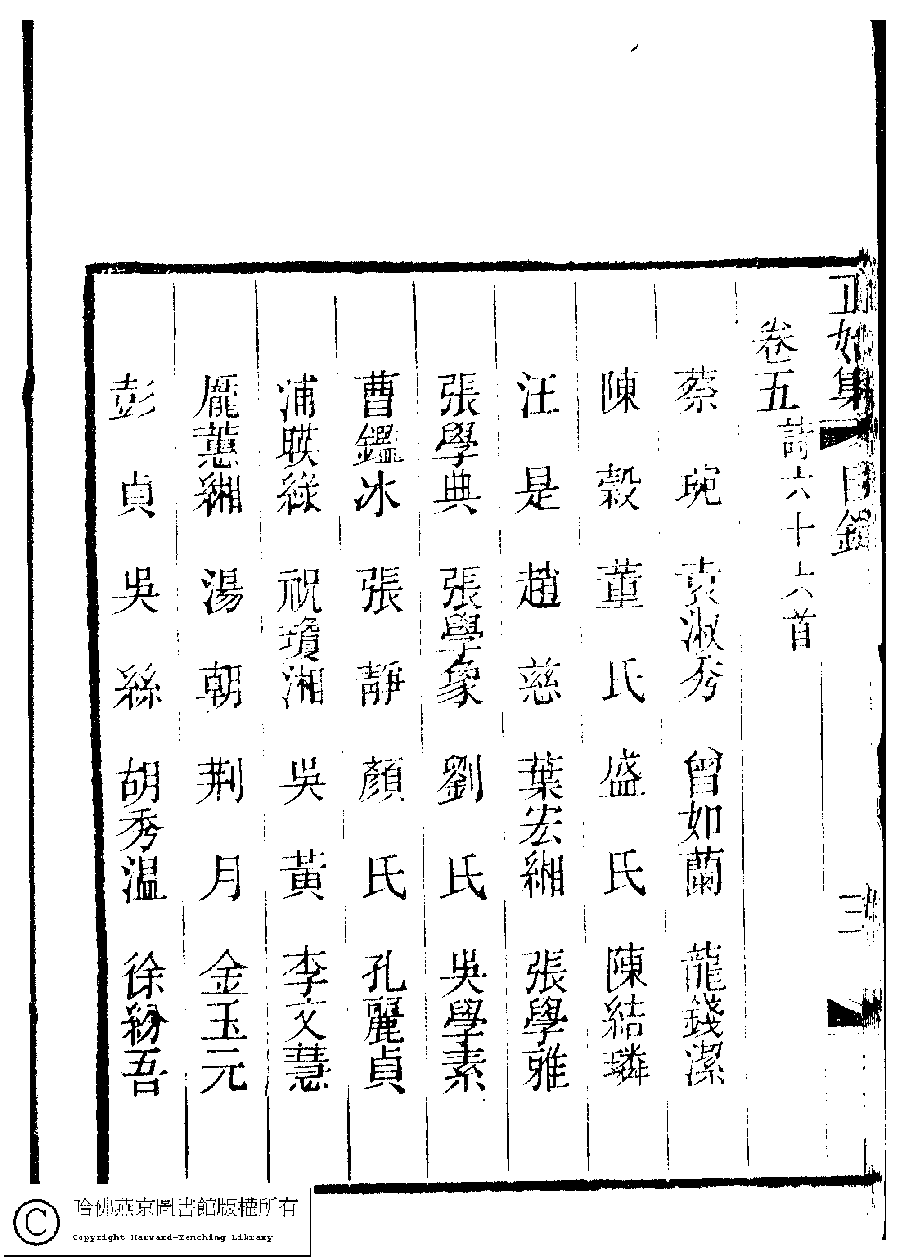 正始集 目錄 三
卷五 詩六十六首
蔡琬 袁淑秀 曾如蘭 龍錢潔
陳穀 董氏 盛氏 陳結璘
汪是 趙慈 葉宏緗 張學雅
張學典 張學象 劉氏 吳學素
曹鑑冰 張靜 顏氏 孔麗貞
浦暎綠 祝瓊湘 吳黃 李文慧
龐蕙纕 湯朝 荆月 金玉元
彭貞 吳絲 胡秀溫 徐紛吾
哈佛燕京圖書館版權所有
Copyright Harvard-Yenching Library